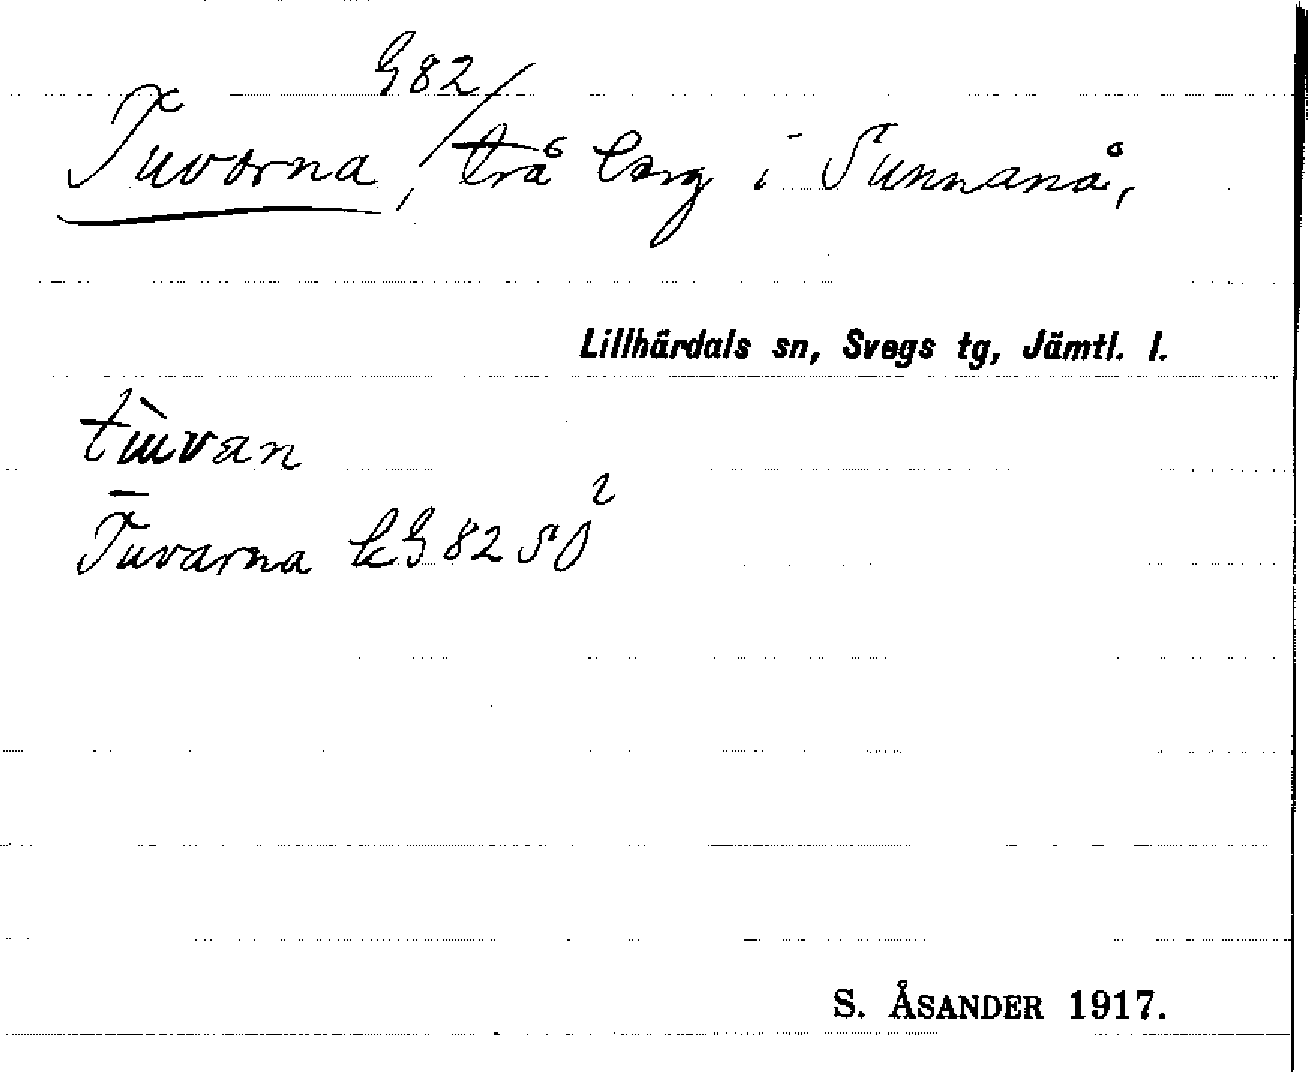 G82
Tuvorna, två berg i Sunnanå,
Lillhärdals sn, Svegs tg, Jämtl. l.
Tuvarna kG 82 SO²
S. ÅSANDER 1917.